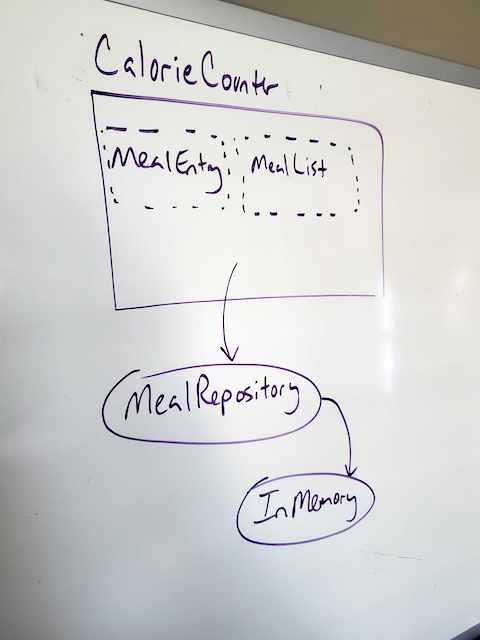 CalorieCounter
MealEntry MealList
MealRepository
InMemory